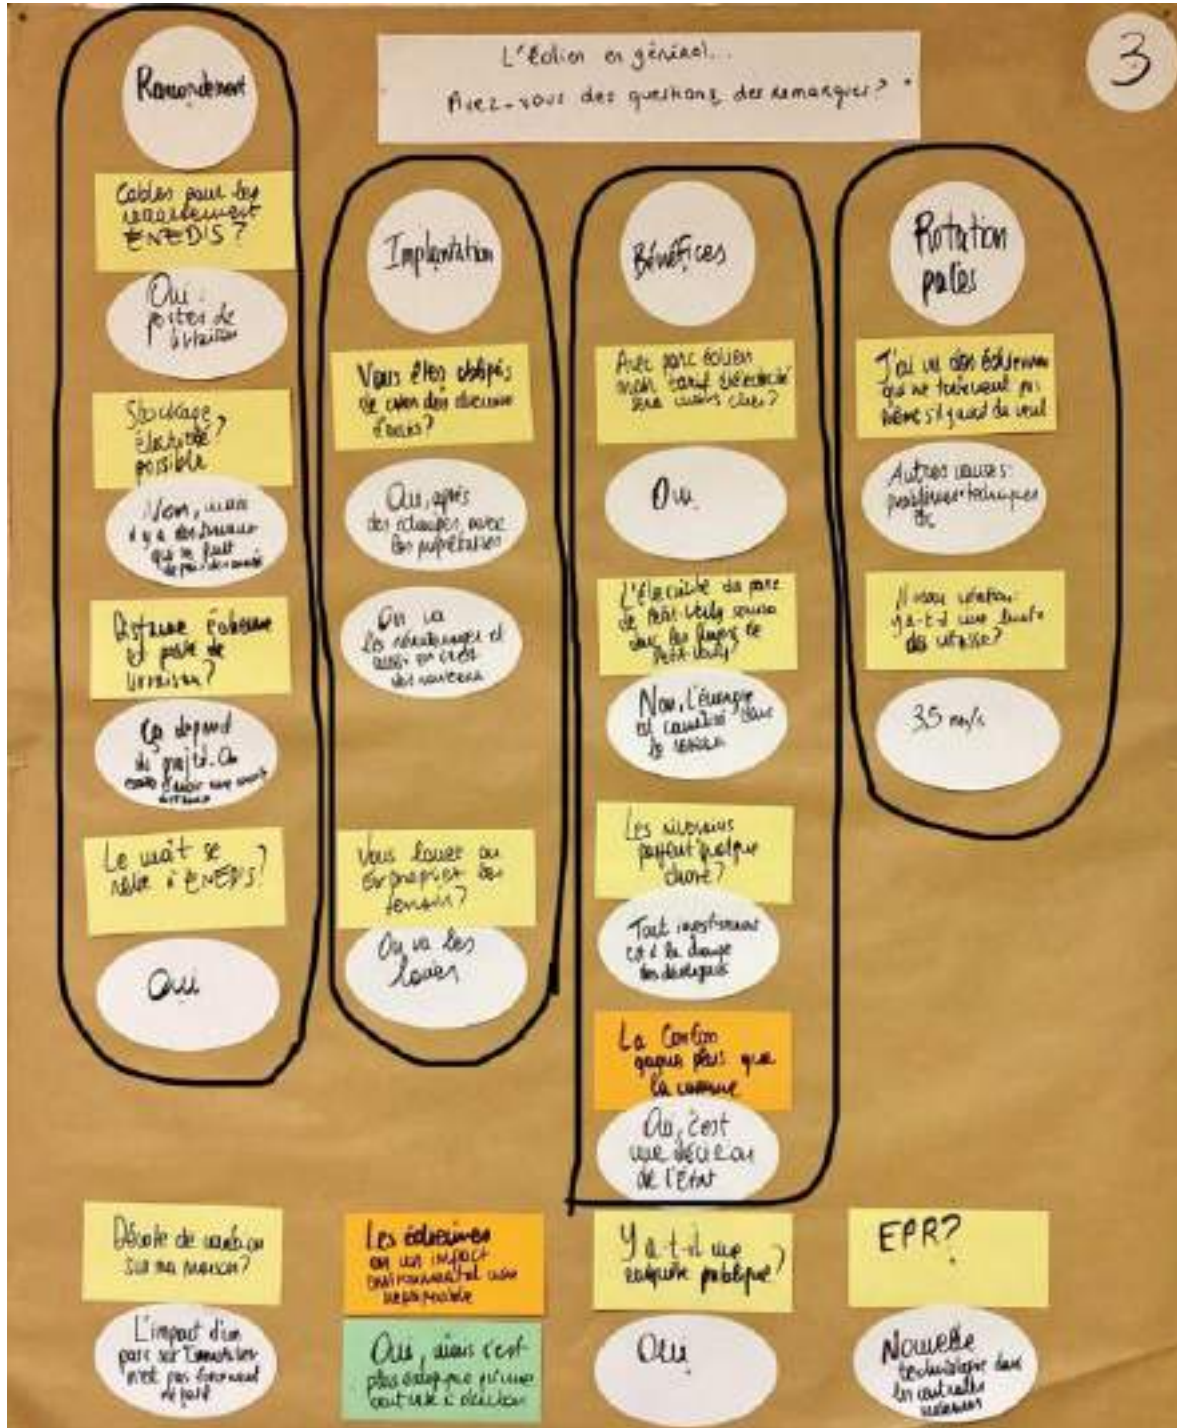 L'éolien en général...
Avez-vous des questions, des remarques?
3
Raccordement
Cables pour les
raccordement
ENEDIS?
Oui :
postes de
livraison
Stockage
électricité?
possible
Non, mais
il y a des travaux
qui se font
depuis des années
Distance éolienne
et poste de
livraison?
Ça dépend
du projet. On
d'avoir une
distance
Le mât se
relie à ENEDIS?
Oui
Implantation
Vous êtes obligés
de créer des chemins
d'accès?
Oui, après
des échanges avec
les propriétaires
On va
les et
aussi en créer
des nouveaux
Vous louez ou
expropriez les
terrain?
On va les
louer
Bénéfices
Avec parc éolien
mon tarif électricité
sera moins cher?
Oui
L'électricité du parc
de Petit-Verly
dans les foyers de
Petit-Verly?
Non, l'énergie
est dans
le réseau
Les riverains
payent quelque
chose?
Tout investissement
est à la charge
des
La ComCom
gagne plus que
la commune
Oui, c'est
une décision
de l'État
Rotation
pales
J'ai vu des éoliennes
qui ne tournent pas
même s'il y avait du vent
Autres causes:
problèmes techniques
etc
rotation:
y a-t-il une limite
de vitesse?
35 m/s
Décote de
sur ma maison?
L'impact d'un
parc sur l'immobilier
n'est pas forcément
Les éoliennes
on un impact
environnemental
Oui, mais c'est
plus
Y a-t-il une
enquête publique?
Oui
EPR?
Nouvelle
technologie dans
les centrales